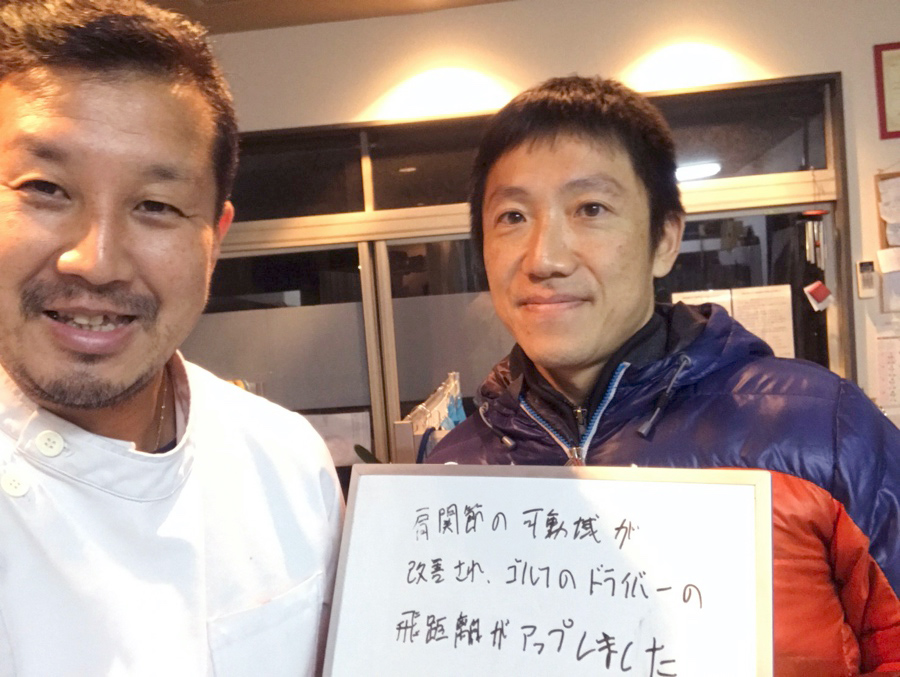 肩関節の可動域が
改善され、ゴルフのドライバーの
飛距離がアップしました